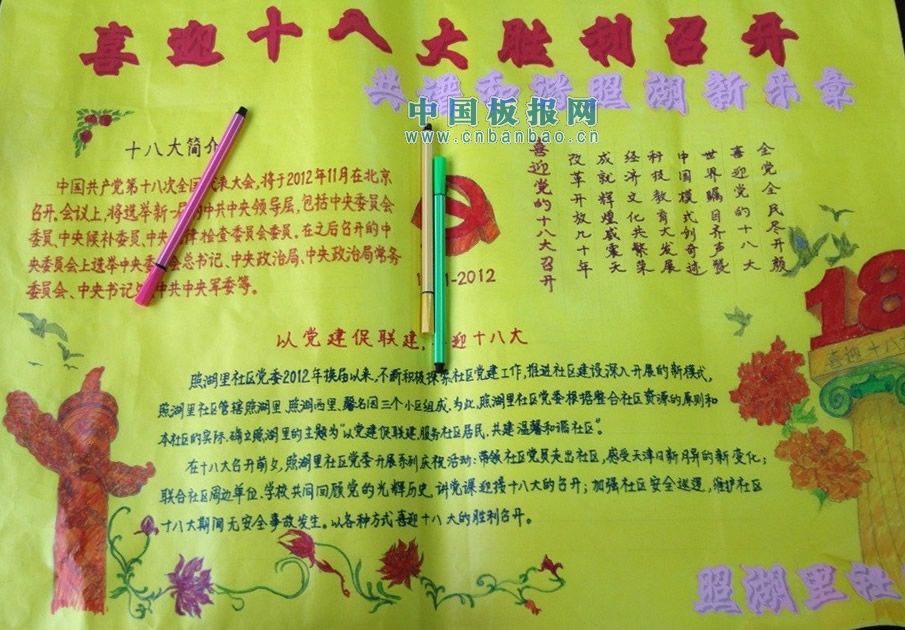 喜迎十八大胜利召开
共谱和谐照湖新乐章
中国板报网
www.cnbanbao.cn
十八大简介
中国共产党第十八次全国代表大会,将于2012年11月在北京
召开.会议上,将选举新一届的中共中央领导层,包括中央委员会
委员、中央候补委员、中央纪律检查委员会委员、在之后召开的中
央委员会上选举中央委员会总书记、中央政治局、中央政治局常务
委员会、中央书记处、中共中央军委等。
-2012
全党全民尽开颜
喜迎党的十八大
世界瞩目齐声赞
中国模式创奇迹
科技教育大发展
经济文化共繁荣
成就辉煌威震天
改革开放九十年
喜迎党的十八大召开
以党建促联建,喜迎十八大
照湖里社区党委2012年换届以来,不断积极探索社区党建工作,推进社区建设深入开展的新模式,
照湖里社区管辖照湖里、照湖西里、馨名园三个小区组成,为此,照湖里社区党委根据整合社区资源的原则和
本社区的实际,确立照湖里的主题为“以党建促联建,服务社区居民,共建温馨和谐社区”。
在十八大召开前夕,照湖里社区党委开展系列庆祝活动:带领社区党员走出社区,感受天津日新月异的新变化;
联合社区周边单位、学校共同回顾党的光辉历史,讲党课迎接十八大的召开;加强社区安全巡逻,维护社区
十八大期间无安全事故发生。以各种方式喜迎十八大的胜利召开。
18
喜迎十八
照湖里社